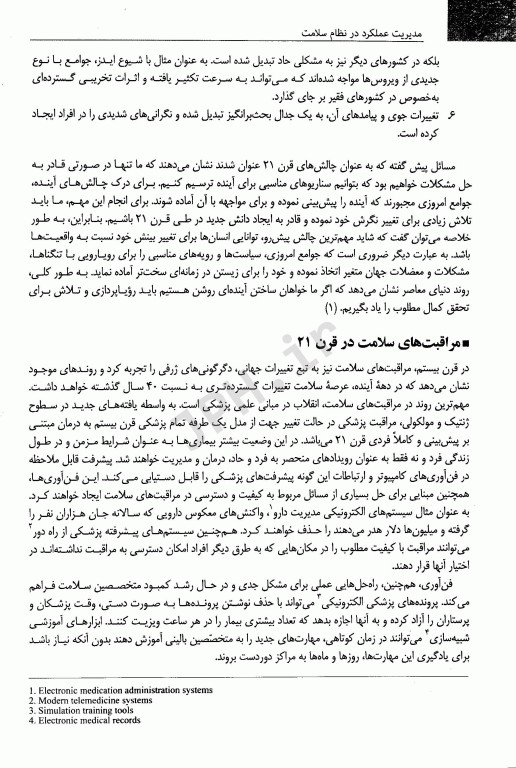 مدیریت عملکرد در نظام سلامت
بلکه در کشورهای دیگر نیز به مشکلی حاد تبدیل شده است. به عنوان مثال با شیوع ایدز، جوامع با نوع
جدیدی از ویروس‌ها مواجه شده‌اند که می‌تواند به سرعت تکثیر یافته و اثرات تخریبی گسترده‌ای
به‌خصوص در کشورهای فقیر بر جای گذارد.
۶ تغییرات جوی و پیامدهای آن، به یک جدال بحث‌برانگیز تبدیل شده و نگرانی‌های شدیدی را در افراد ایجاد
کرده است.
مسائل پیش گفته که به عنوان چالش‌های قرن ۲۱ عنوان شدند نشان می‌دهند که ما تنها در صورتی قادر به
حل مشکلات خواهیم بود که بتوانیم سناریوهای مناسبی برای آینده ترسیم کنیم. برای درک چالش‌های آینده،
جوامع امروزی مجبورند که آینده را پیش‌بینی نموده و برای مواجهه با آن آماده شوند. برای انجام این مهم، ما باید
تلاش زیادی برای تغییر نگرش خود نموده و قادر به ایجاد دانش جدید در طی قرن ۲۱ باشیم. بنابراین، به طور
خلاصه می‌توان گفت که شاید مهم‌ترین چالش پیش‌رو، توانایی انسان‌ها برای تغییر بینش خود نسبت به واقعیت‌ها
باشد. به عبارت دیگر ضروری است که جوامع امروزی، سیاست‌ها و رویه‌های مناسبی را برای رویارویی با تنگناها،
مشکلات و معضلات جهان متغیر اتخاذ نموده و خود را برای زیستن در زمانه‌ای سخت‌تر آماده نماید. به طور کلی،
روند دنیای معاصر نشان می‌دهد که اگر ما خواهان ساختن آینده‌ای روشن هستیم باید رؤیاپردازی و تلاش برای
تحقق کمال مطلوب را یاد بگیریم. (۱)
■ مراقبت‌های سلامت در قرن ۲۱
در قرن بیستم، مراقبت‌های سلامت نیز به تبع تغییرات جهانی، دگرگونی‌های ژرفی را تجربه کرد و روندهای موجود
نشان می‌دهد که در دههٔ آینده، عرصهٔ سلامت تغییرات گسترده‌تری به نسبت ۴۰ سال گذشته خواهد داشت.
مهم‌ترین روند در مراقبت‌های سلامت، انقلاب در مبانی علمی پزشکی است. به واسطه یافته‌های جدید در سطوح
ژنتیک و مولکولی، مراقبت پزشکی در حالت تغییر جهت از مدل یک طرفه تمام پزشکی قرن بیستم به درمان مبتنی
بر پیش‌بینی و کاملاً فردی قرن ۲۱ می‌باشد. در این وضعیت بیشتر بیماری‌ها به عنوان شرایط مزمن و در طول
زندگی فرد و نه فقط به عنوان رویدادهای منحصر به فرد و حاد، درمان و مدیریت خواهند شد. پیشرفت قابل ملاحظه
در فن‌آوری‌های کامپیوتر و ارتباطات این گونه پیشرفت‌های پزشکی را قابل دستیابی می‌کند. این فن‌آوری‌ها،
همچنین مبنایی برای حل بسیاری از مسائل مربوط به کیفیت و دسترسی در مراقبت‌های سلامت ایجاد خواهند کرد.
به عنوان مثال سیستم‌های الکترونیکی مدیریت دارو¹، واکنش‌های معکوس دارویی که سالانه جان هزاران نفر را
گرفته و میلیون‌ها دلار هدر می‌دهند را حذف خواهند کرد. هم‌چنین سیستم‌های پیشرفته پزشکی از راه دور²
می‌توانند مراقبت با کیفیت مطلوب را در مکان‌هایی که به طرق دیگر افراد امکان دسترسی به مراقبت نداشته‌اند در
اختیار آنها قرار دهند.
فن‌آوری، هم‌چنین، راه‌حل‌هایی عملی برای مشکل جدی و در حال رشد کمبود متخصصین سلامت فراهم
می‌کند. پرونده‌های پزشکی الکترونیکی³ می‌تواند با حذف نوشتن پرونده‌ها به صورت دستی، وقت پزشکان و
پرستاران را آزاد کرده و به آنها اجازه بدهد که تعداد بیشتری بیمار را در هر ساعت ویزیت کنند. ابزارهای آموزشی
شبیه‌سازی⁴ می‌توانند در زمان کوتاهی، مهارت‌های جدید را به متخصّصین بالینی آموزش دهند بدون آنکه نیاز باشد
برای یادگیری این مهارت‌ها، روزها و ماه‌ها به مراکز دوردست بروند.
1. Electronic medication administration systems
2. Modern telemedicine systems
3. Simulation training tools
4. Electronic medical records